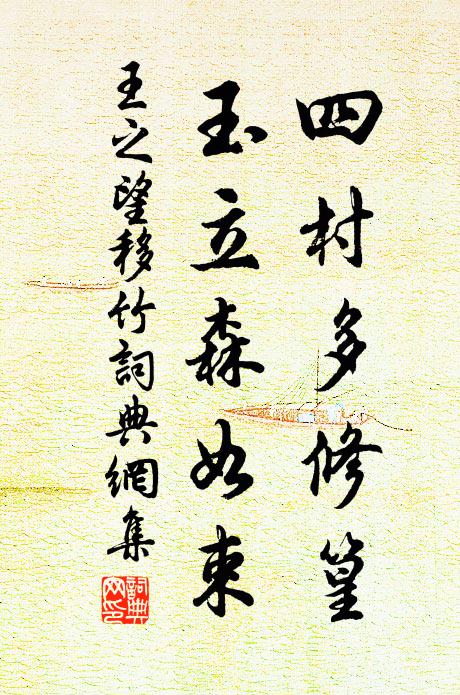 四村多修篁
玉立森如束
王之望移竹詞典網集
詞典网印